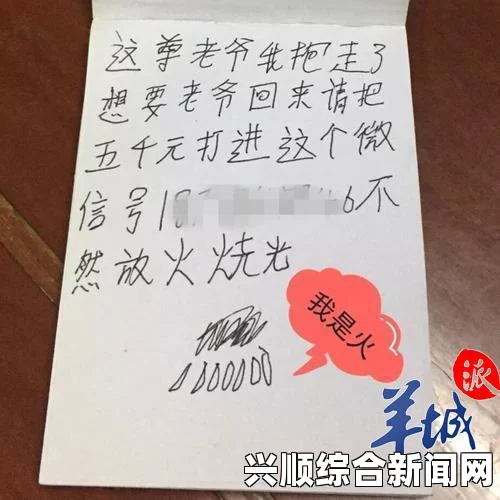 这尊老爷我抱走了
想要老爷回来请把
五千元打进这个微
信号18 6不
然放火烧光
1000000
我是火
羊城派
兴顺综合新闻网